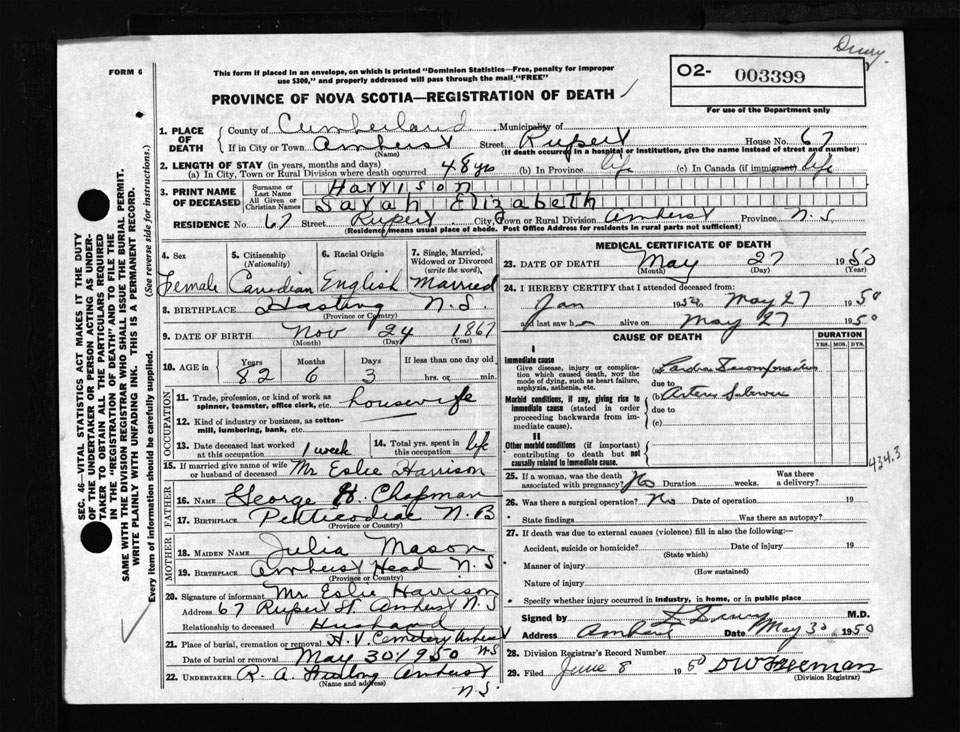 Drury
FORM 6
This form if placed in an envelope, on which is printed "Dominion Statistics—Free, penalty for improper
use $300," and properly addressed will pass through the mail "FREE"
PROVINCE OF NOVA SCOTIA—REGISTRATION OF DEATH
O2- 003399
For use of the Department only
1. PLACE OF DEATH
County of Cumberland Municipality of
If in City or Town Amherst Street Rupert House No. 67
(Name) (If death occurred in a hospital or institution, give the name instead of street and number)
2. LENGTH OF STAY (in years, months and days)
(a) In City, Town or Rural Division where death occurred 48 yrs (b) In Province life (c) In Canada (if immigrant) life
3. PRINT NAME OF DECEASED
Surname or Last Name Harrison
All Given or Christian Names Sarah Elizabeth
RESIDENCE No. 67 Street Rupert City, Town or Rural Division Amherst Province N.S
(Residence means usual place of abode. Post Office Address for residents in rural parts not sufficient)
4. Sex Female
5. Citizenship (Nationality) Canadian
6. Racial Origin English
7. Single, Married, Widowed or Divorced (write the word) Married
8. BIRTHPLACE Hasting N.S.
(Province or Country)
9. DATE OF BIRTH Nov 24 1867
(Month) (Day) (Year)
10. AGE in Years 82 Months 6 Days 3 If less than one day old hrs. or min.
OCCUPATION
11. Trade, profession, or kind of work as spinner, teamster, office clerk, etc. housewife
12. Kind of industry or business, as cotton-mill, lumbering, bank, etc.
13. Date deceased last worked at this occupation 1 week
14. Total yrs. spent in this occupation life
15. If married give name of wife or husband of deceased Mr Eslie Harrison
FATHER
16. NAME George H. Chapman
17. BIRTHPLACE Petticodiac N.B
(Province or Country)
MOTHER
18. MAIDEN NAME Julia Mason
19. BIRTHPLACE Amherst Head N.S
(Province or Country)
20. Signature of informant Mr Eslie Harrison
Address 67 Rupert St. Amherst N.S
Relationship to deceased Husband
21. Place of burial, cremation or removal H.V. Cemetery Amherst N.S
Date of burial or removal May 30 1950
22. UNDERTAKER R. A. Amherst N.S.
(Name and address)
MEDICAL CERTIFICATE OF DEATH
23. DATE OF DEATH May 27 1950
(Month) (Day) (Year)
24. I HEREBY CERTIFY that I attended deceased from:
Jan 1950 to May 27 1950
and last saw h alive on May 27 1950
CAUSE OF DEATH
DURATION
YRS. MOS. DYS.
I
Immediate cause
Give disease, injury or complication which caused death, NOT the mode of dying, such as heart failure, asphyxia, asthenia, etc.
(a) Cardiac Decompensation
due to
Morbid conditions, if any, giving rise to immediate cause (stated in order proceeding backwards from immediate cause).
(b)
due to
(c)
II
Other morbid conditions (if important) contributing to death but not causally related to immediate cause.
434.3
25. If a woman, was the death associated with pregnancy? No Duration weeks. Was there a delivery?
26. Was there a surgical operation? No Date of operation 19
State findings Was there an autopsy?
27. If death was due to external causes (violence) fill in also the following:
Accident, suicide or homicide? Date of injury 19
(State which)
Manner of injury
(How sustained)
Nature of injury
Specify whether injury occurred in industry, in home, or in public place
Signed by Drury M.D.
Address Amherst Date May 30 1950
28. Division Registrar's Record Number
29. Filed June 8 1950 D W Freeman
(Division Registrar)
SEC. 46—VITAL STATISTICS ACT MAKES IT THE DUTY
OF THE UNDERTAKER OR PERSON ACTING AS UNDER-
TAKER TO OBTAIN ALL THE PARTICULARS REQUIRED
IN THE "REGISTRATION OF DEATH" AND TO FILE THE
SAME WITH THE DIVISION REGISTRAR WHO SHALL ISSUE THE BURIAL PERMIT.
WRITE PLAINLY WITH UNFADING INK. THIS IS A PERMANENT RECORD.
Every item of information should be carefully supplied. (See reverse side for instructions.)